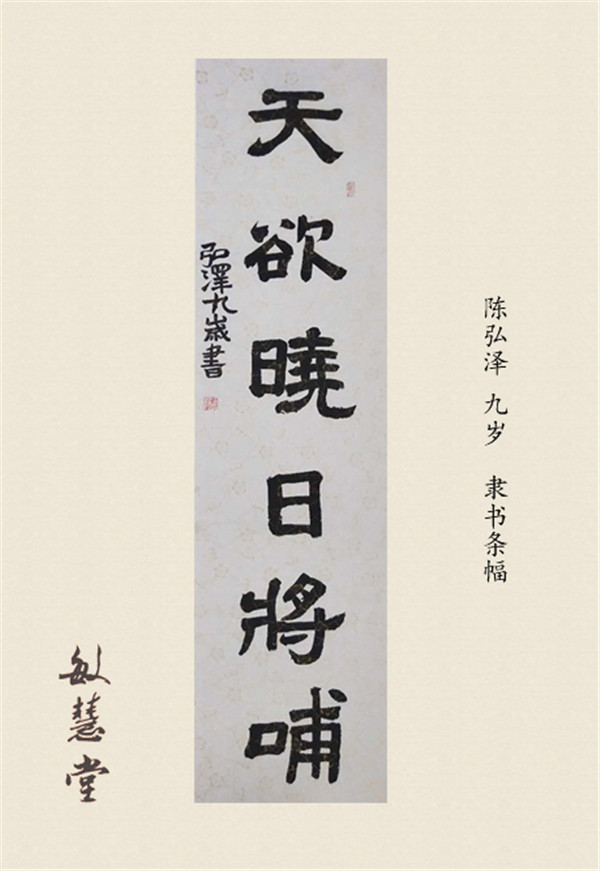 天欲曉日將哺
弘澤九歲書
陈弘泽 九岁 隶书条幅
敏慧堂